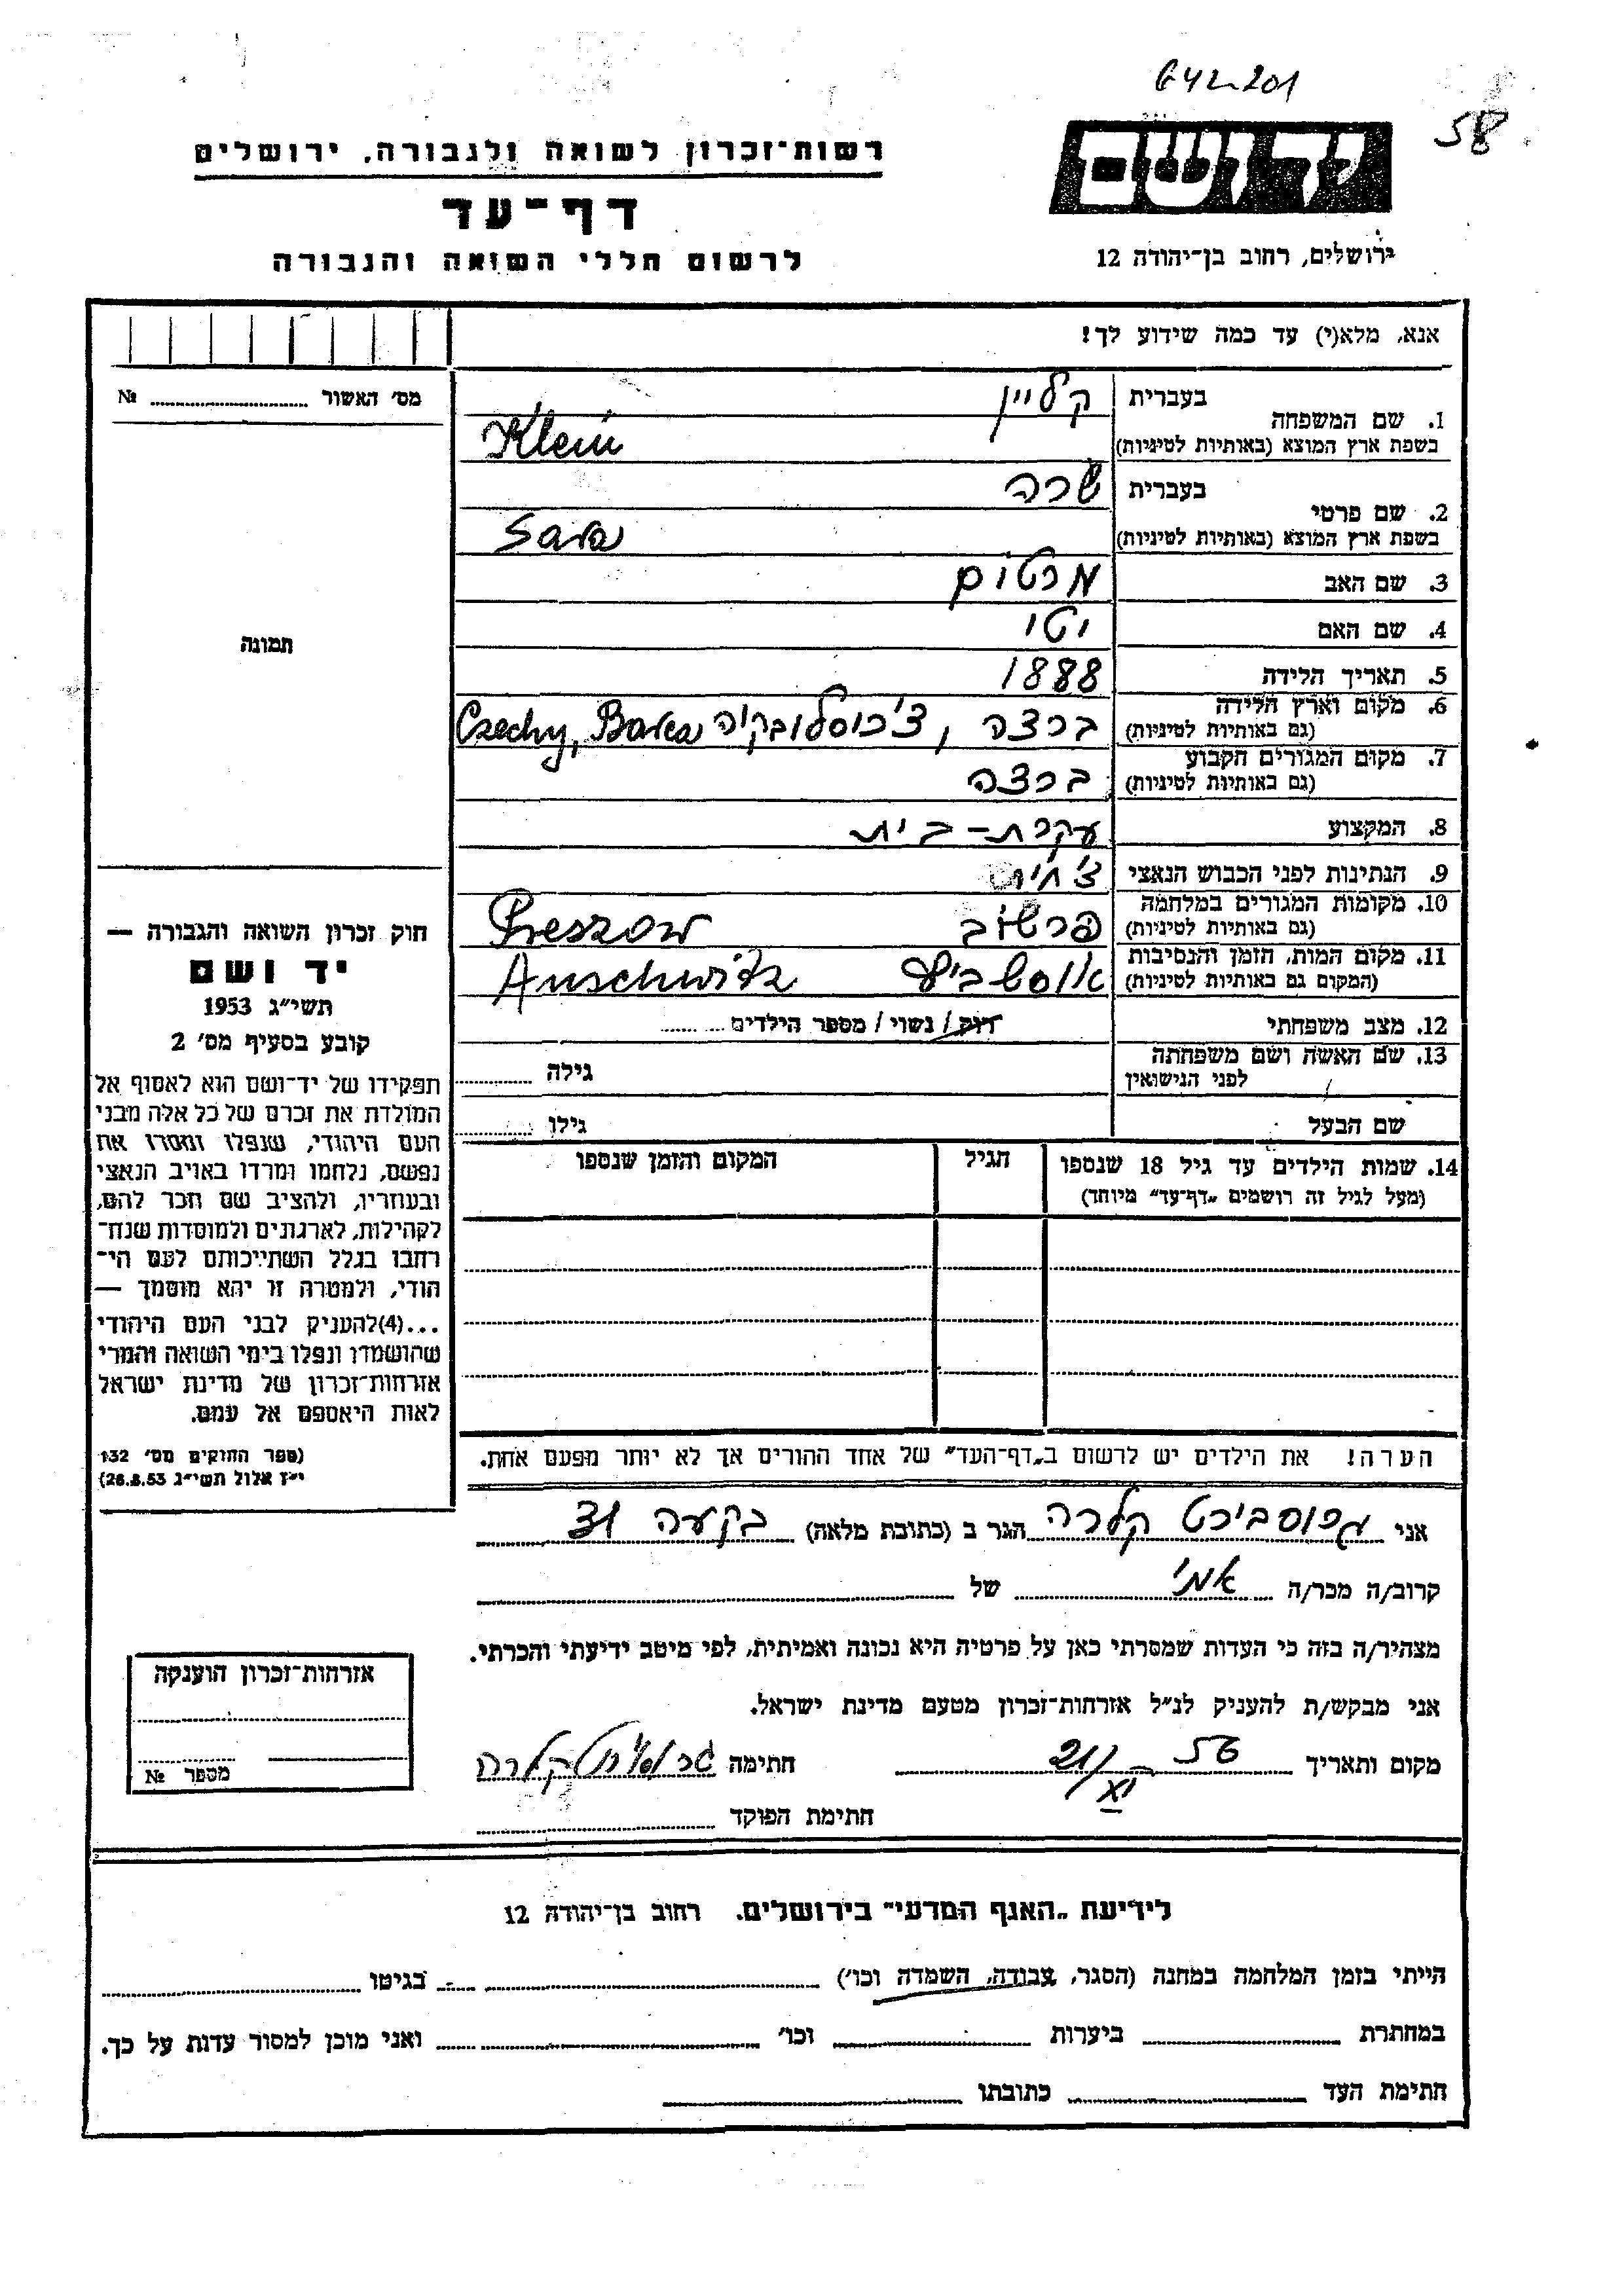 642-201
58
יד ושם
רשות־זכרון לשואה ולגבורה, ירושלים
דף־עד
לרשום חללי השואה והגבורה
ירושלים, רחוב בן־יהודה 12
אנא, מלא(י) עד כמה שידוע לך!
מס׳ האשור № 
1. שם המשפחה בעברית קליין
בשפת ארץ המוצא (באותיות לטיניות) Klein
2. שם פרטי בעברית שרה
בשפת ארץ המוצא (באותיות לטיניות) Sara
3. שם האב מרטום
4. שם האם יטי
תמונה
5. תאריך הלידה 1888
6. מקום וארץ הלידה (גם באותיות לטיניות) ברצה, צ׳כוסלובקיה Czechy, Barca
7. מקום המגורים הקבוע (גם באותיות לטיניות) ברצה
8. המקצוע עקרת-בית
9. הנתינות לפני הכבוש הנאצי
10. מקומות המגורים במלחמה (גם באותיות לטיניות) פרשוב Preszow
11. מקום המות, הזמן והנסיבות (המקום גם באותיות לטיניות) Auschwitz
12. מצב משפחתי רווק/ נשוי/ מספר הילדים
13. שם האשה ושם משפחתה לפני הנישואין גילה
שם הבעל גילו
14. שמות הילדים עד גיל 18 שנספו הגיל המקום והזמן שנספו
(מעל לגיל זה רושמים „דף־עד״ מיוחד)
הערה! את הילדים יש לרשום ב„דף־העד״ של אחד ההורים אך לא יותר מפעם אחת.
חוק זכרון השואה והגבורה —
יד ושם
תשי״ג 1953
קובע בסעיף מס׳ 2
תפקידו של יד־ושם הוא לאסוף אל
המולדת את זכרם של כל אלה מבני
העם היהודי, שנפלו ומסרו את
נפשם, נלחמו ומרדו באויב הנאצי
ובעוזריו, ולהציב שם וזכר להם,
לקהילות, לארגונים ולמוסדות שנח־
רבו בגלל השתייכותם לעם הי־
הודי, ולמטרה זו יהא מוסמך —
...(4)להעניק לבני העם היהודי
שהושמדו ונפלו בימי השואה והמרי
אזרחות־זכרון של מדינת ישראל
לאות היאספם אל עמם.
(ספר החוקים מס׳ 132
י״ז אלול תשי״ג 26.8.53)
אני קלרה הגר ב (כתובת מלאה) בקעה 31
קרוב/ה מכר/ה אמי של
מצהיר/ה בזה כי העדות שמסרתי כאן על פרטיה היא נכונה ואמיתית, לפי מיטב ידיעתי והכרתי.
אני מבקש/ת להעניק לנ״ל אזרחות־זכרון מטעם מדינת ישראל.
מקום ותאריך 56 21/XI חתימה
חתימת הפוקד
אזרחות־זכרון הוענקה
מספר №
לידיעת „האגף המדעי״ בירושלים. רחוב בן־יהודה 12
הייתי בזמן המלחמה במחנה (הסגר, עבודה, השמדה וכו׳) בגיטו
במחתרת ביערות וכו׳ ואני מוכן למסור עדות על כך.
חתימת העד כתובתו